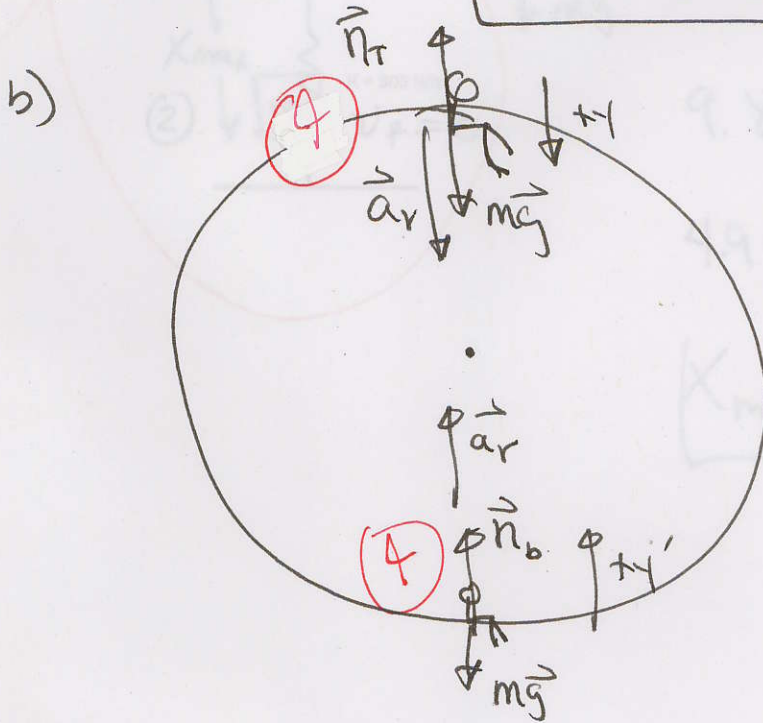 b)
n⃗_T
4
+y
a⃗_r
mg⃗
a⃗_r
4
n⃗_b
+y'
mg⃗